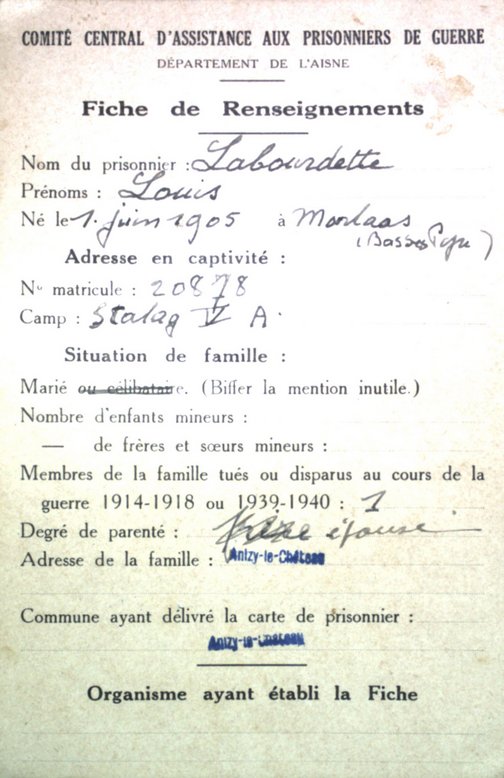 COMITÉ CENTRAL D'ASSISTANCE AUX PRISONNIERS DE GUERRE
DÉPARTEMENT DE L'AISNE
Fiche de Renseignements
Nom du prisonnier : Labourdette
Prénoms : Louis
Né le 1. juin 1905 à Morlaas
(Basses Pyr)
Adresse en captivité :
No matricule : 20878
Camp : Stalag V A.
Situation de famille :
Marié ou célibataire. (Biffer la mention inutile.)
Nombre d'enfants mineurs :
— de frères et sœurs mineurs :
Membres de la famille tués ou disparus au cours de la
guerre 1914-1918 ou 1939-1940 : 1
Degré de parenté : épouse
Adresse de la famille : Anizy-le-Château
Commune ayant délivré la carte de prisonnier :
Anizy-le-Château
Organisme ayant établi la Fiche